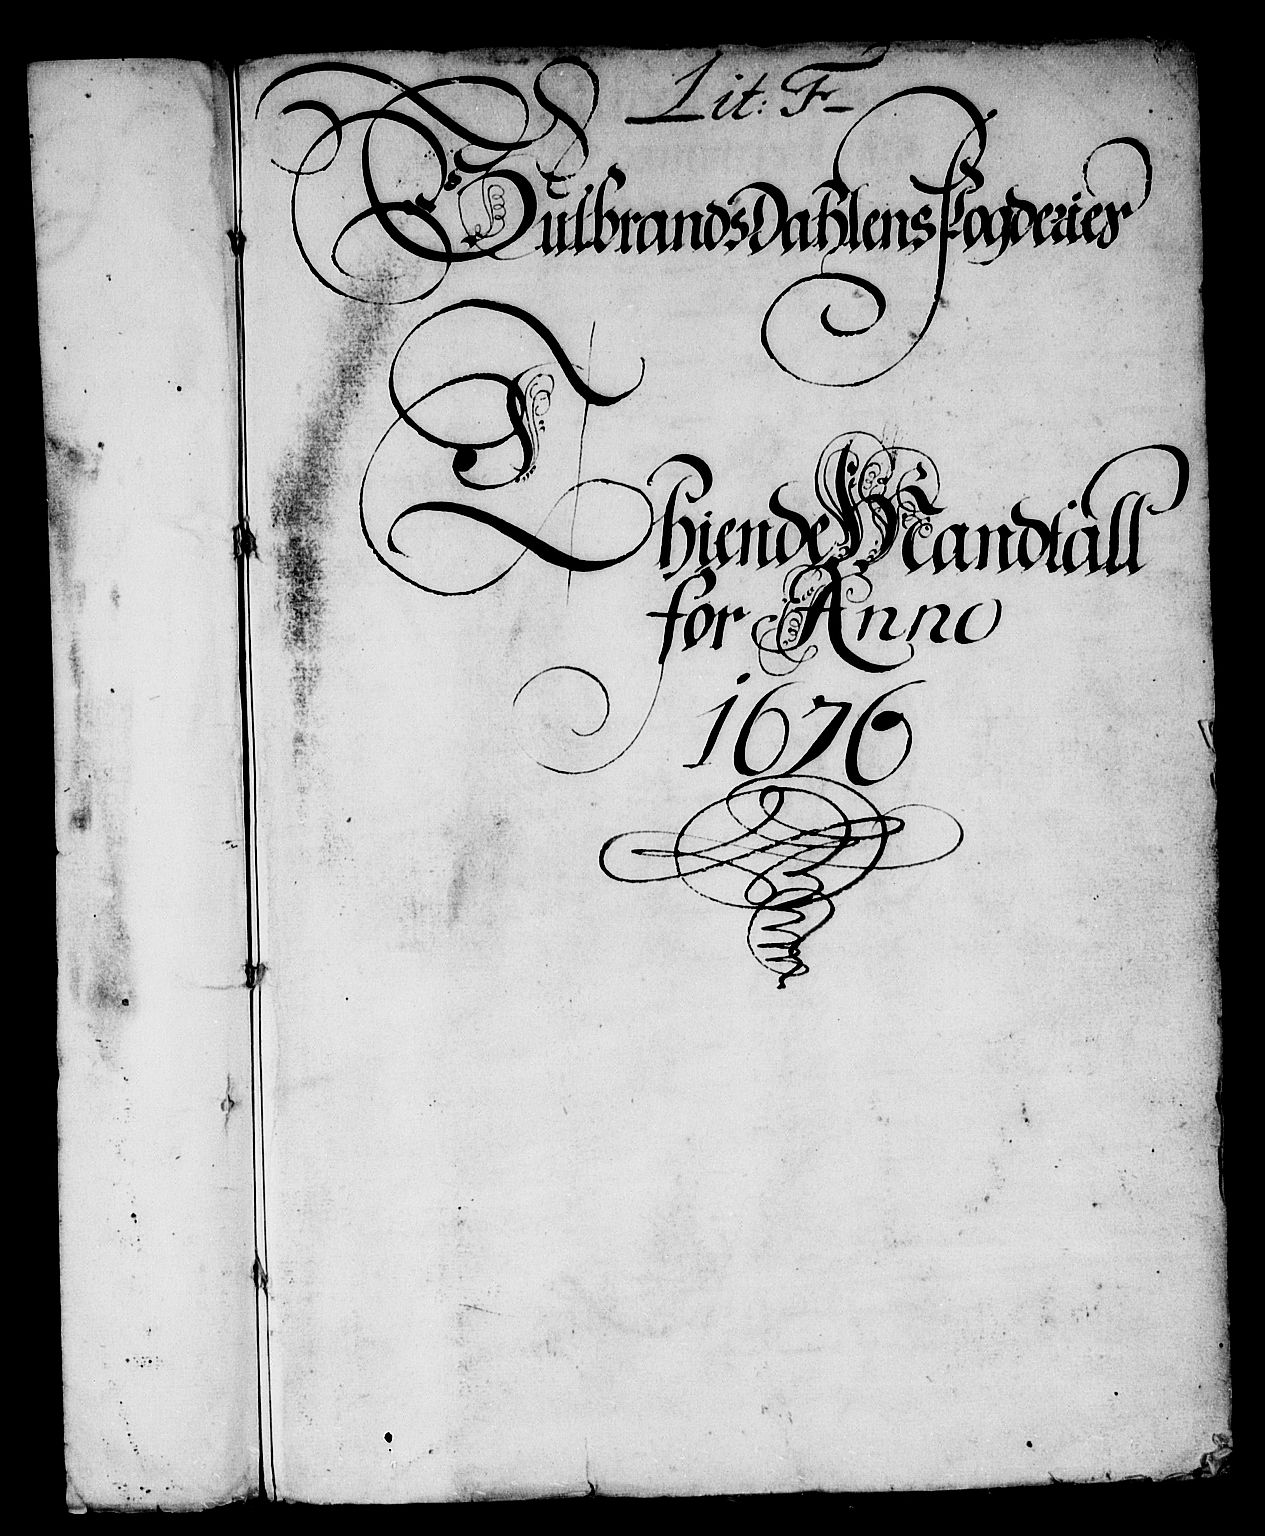 Lit: F-
GulbrandsDahlens fogderies
Thiende Mandtall
for Anno
1676